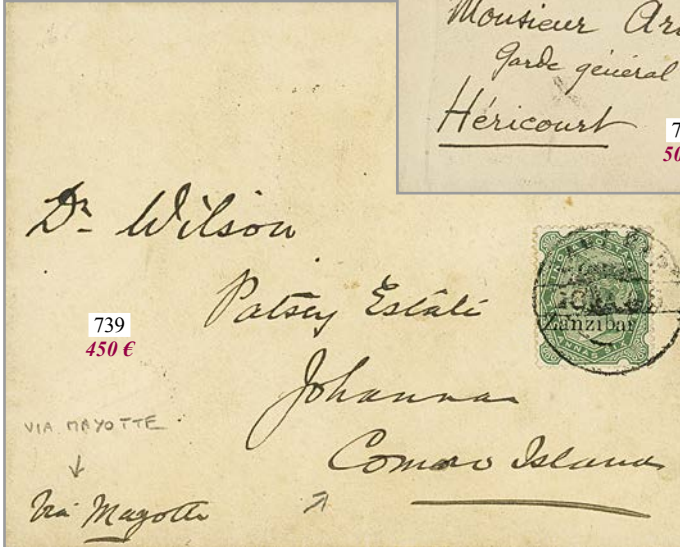 Monsieur
Garde général
Héricourt
7
50
Dr Wilson
Patsy Estate
Johanna
Comoro Island
739
450 €
VIA MAYOTTE
Via Mayotte
Zanzibar
ANNAS